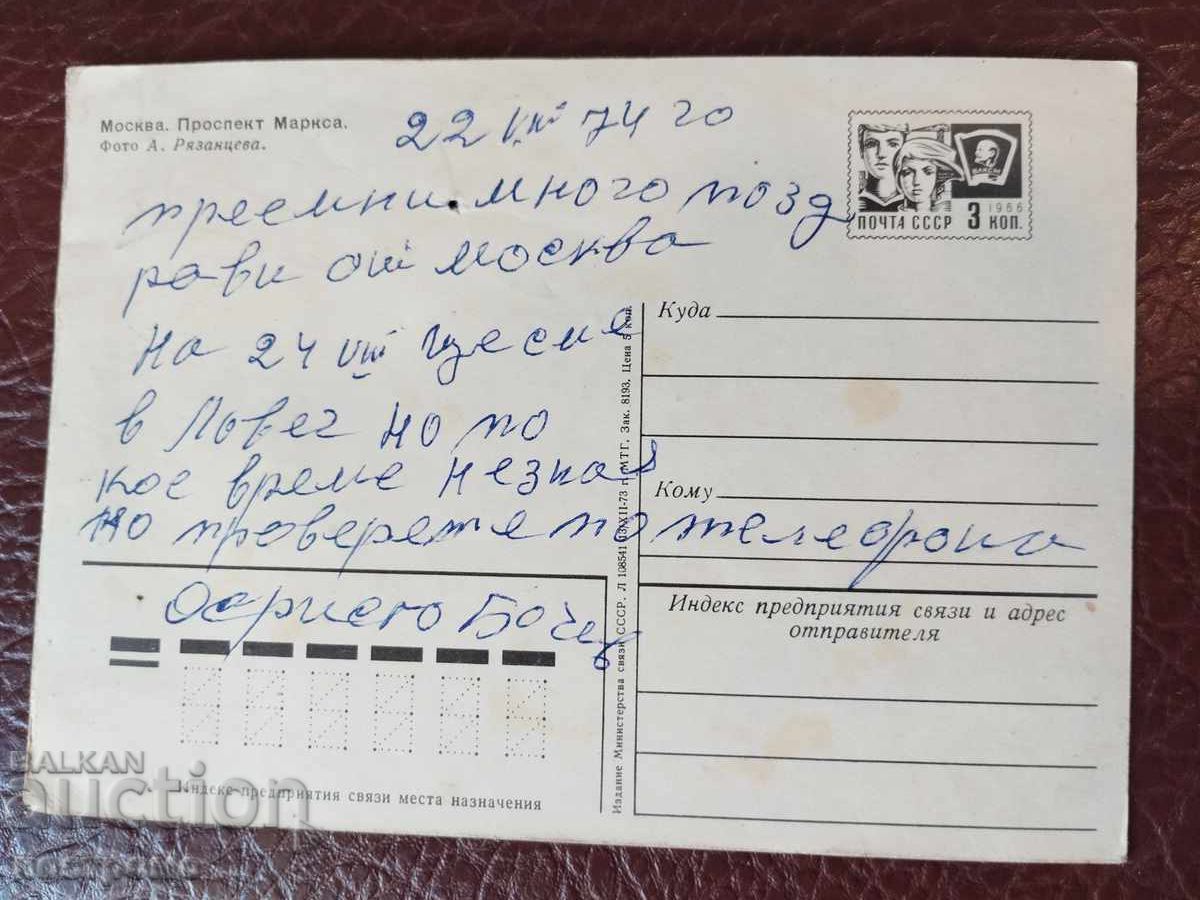 Москва. Проспект Маркса.
Фото А. Рязанцева.
22 VIII 74 го
приемни много позд
рави от Москва
На 24 VIII ще сме
в Ловеч но по
кое време незная
но проверете по телефона
Бочев
ВЛКСМ
1966
ПОЧТА СССР 3 КОП.
Куда
Кому
Индекс предприятия связи и адрес
отправителя
Индекс предприятия связи места назначения
Издание Министерства связи СССР. Л 108541 13/XII-73 г. МТГ. Зак. 8193. Цена 5 коп.
BALKAN
auction